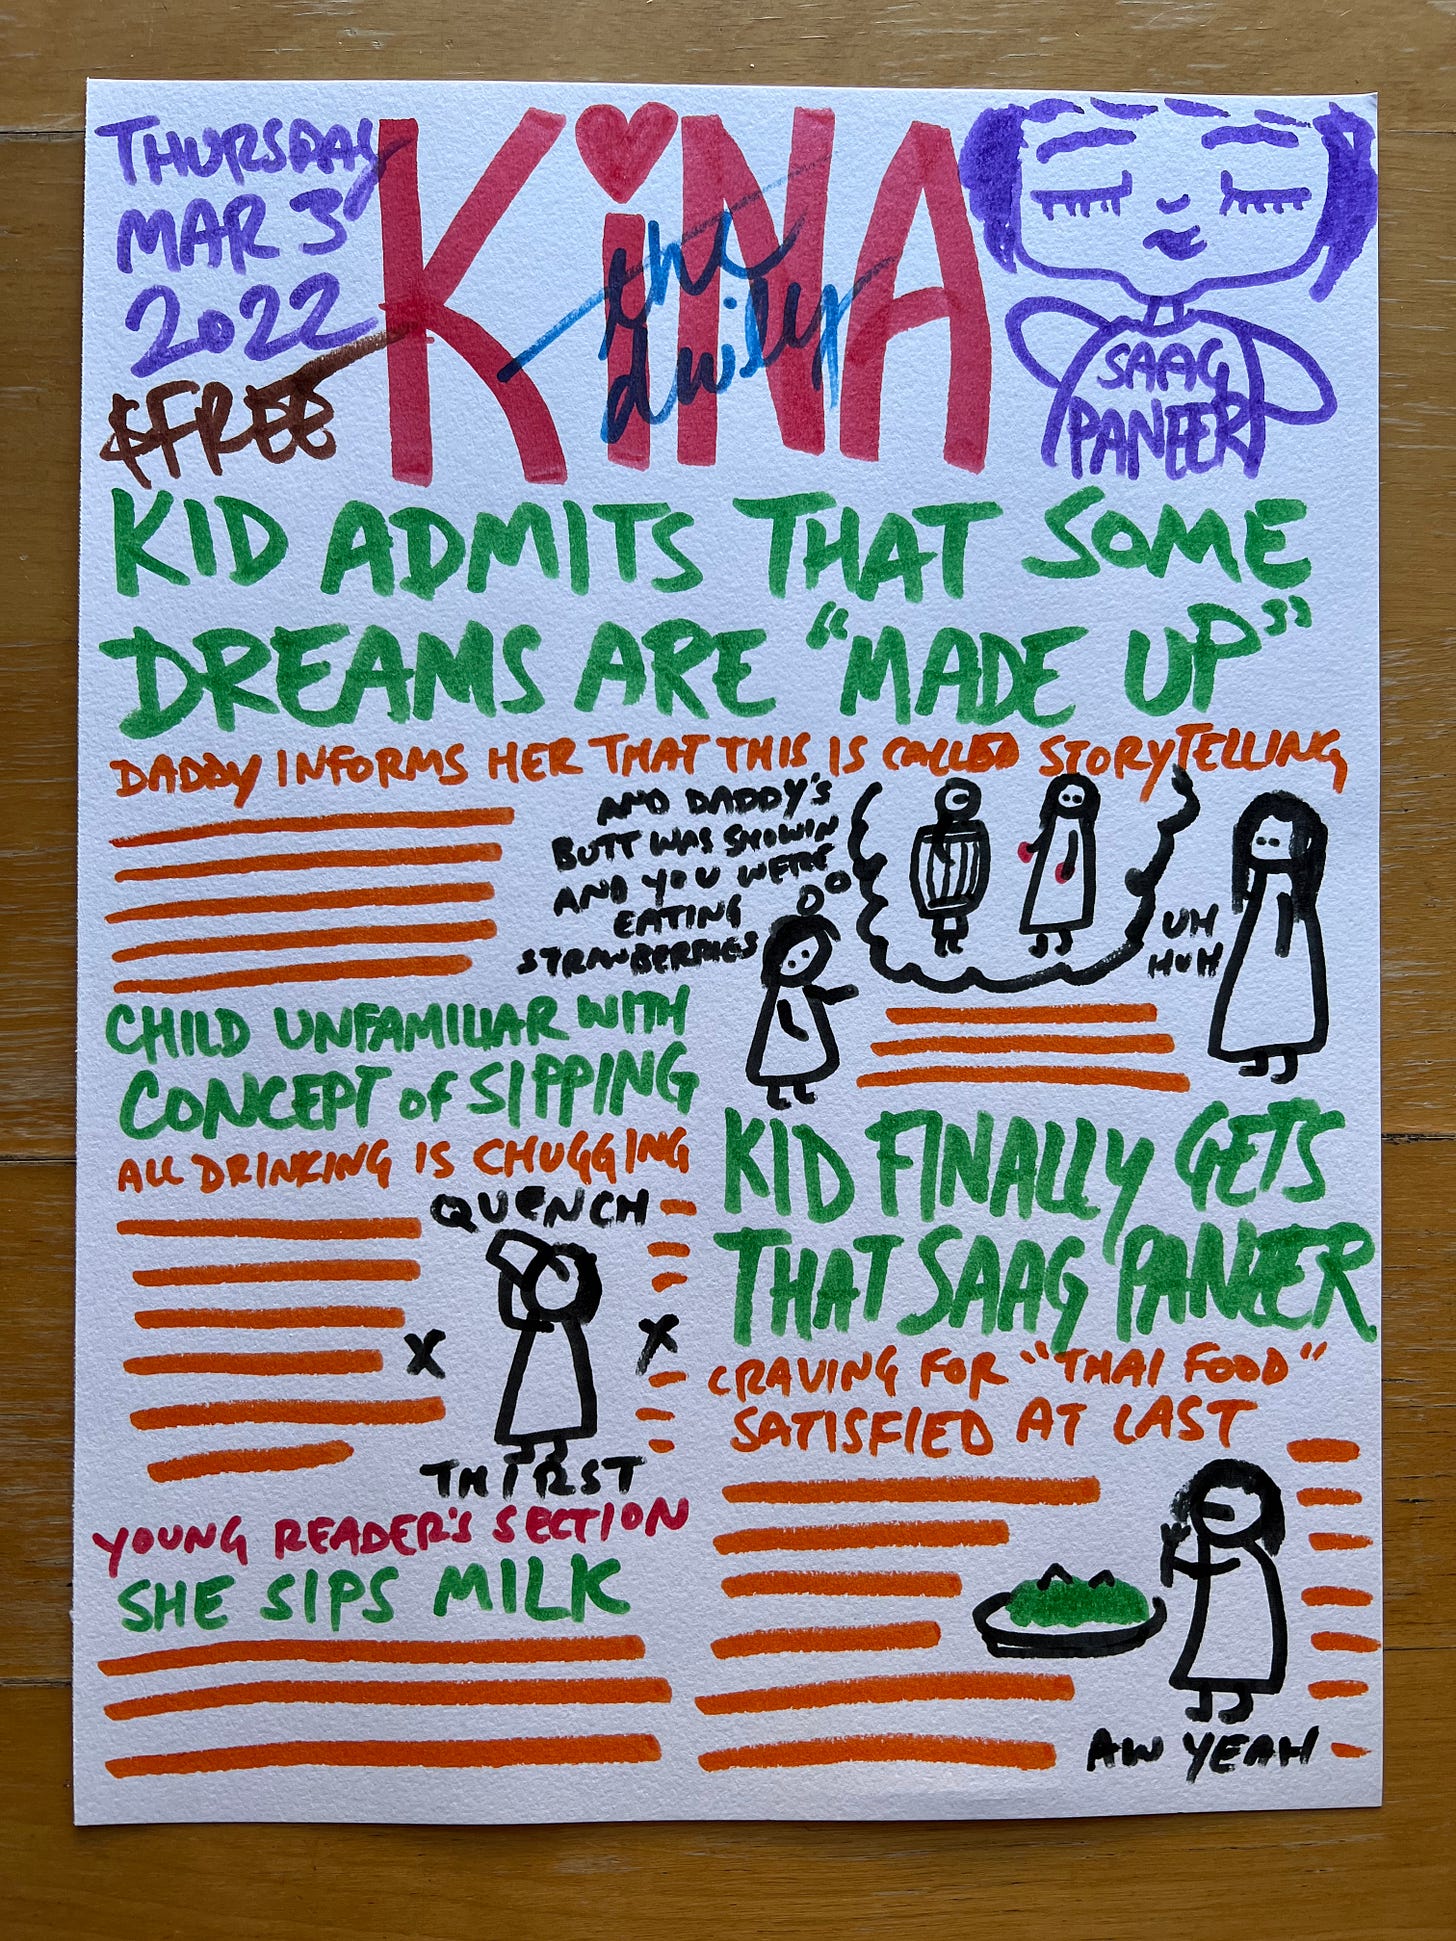 THURSDAY
MAR 3
2022
$FREE
KiNA
the
daily
SAAG
PANEER
KID ADMITS THAT SOME
DREAMS ARE "MADE UP"
DADDY INFORMS HER THAT THIS IS CALLED STORYTELLING
AND DADDY'S
BUTT WAS SHOWIN
AND YOU WERE
EATING
STRAWBERRIES
UH
HUH
CHILD UNFAMILIAR WITH
CONCEPT of SIPPING
ALL DRINKING IS CHUGGING
QUENCH
X X
THIRST
YOUNG READER'S SECTION
SHE SIPS MILK
KID FINALLY GETS
THAT SAAG PANEER
CRAVING FOR "THAI FOOD"
SATISFIED AT LAST
AW YEAH